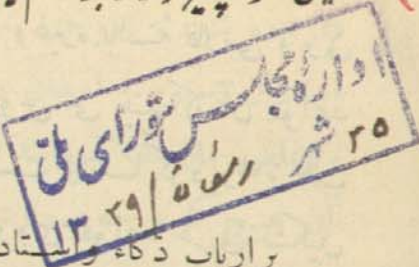 اداره مجلس شورای ملی
۲۵ شهر رمضان ۱۳۲۹
بر ارباب ذکاء و استاد